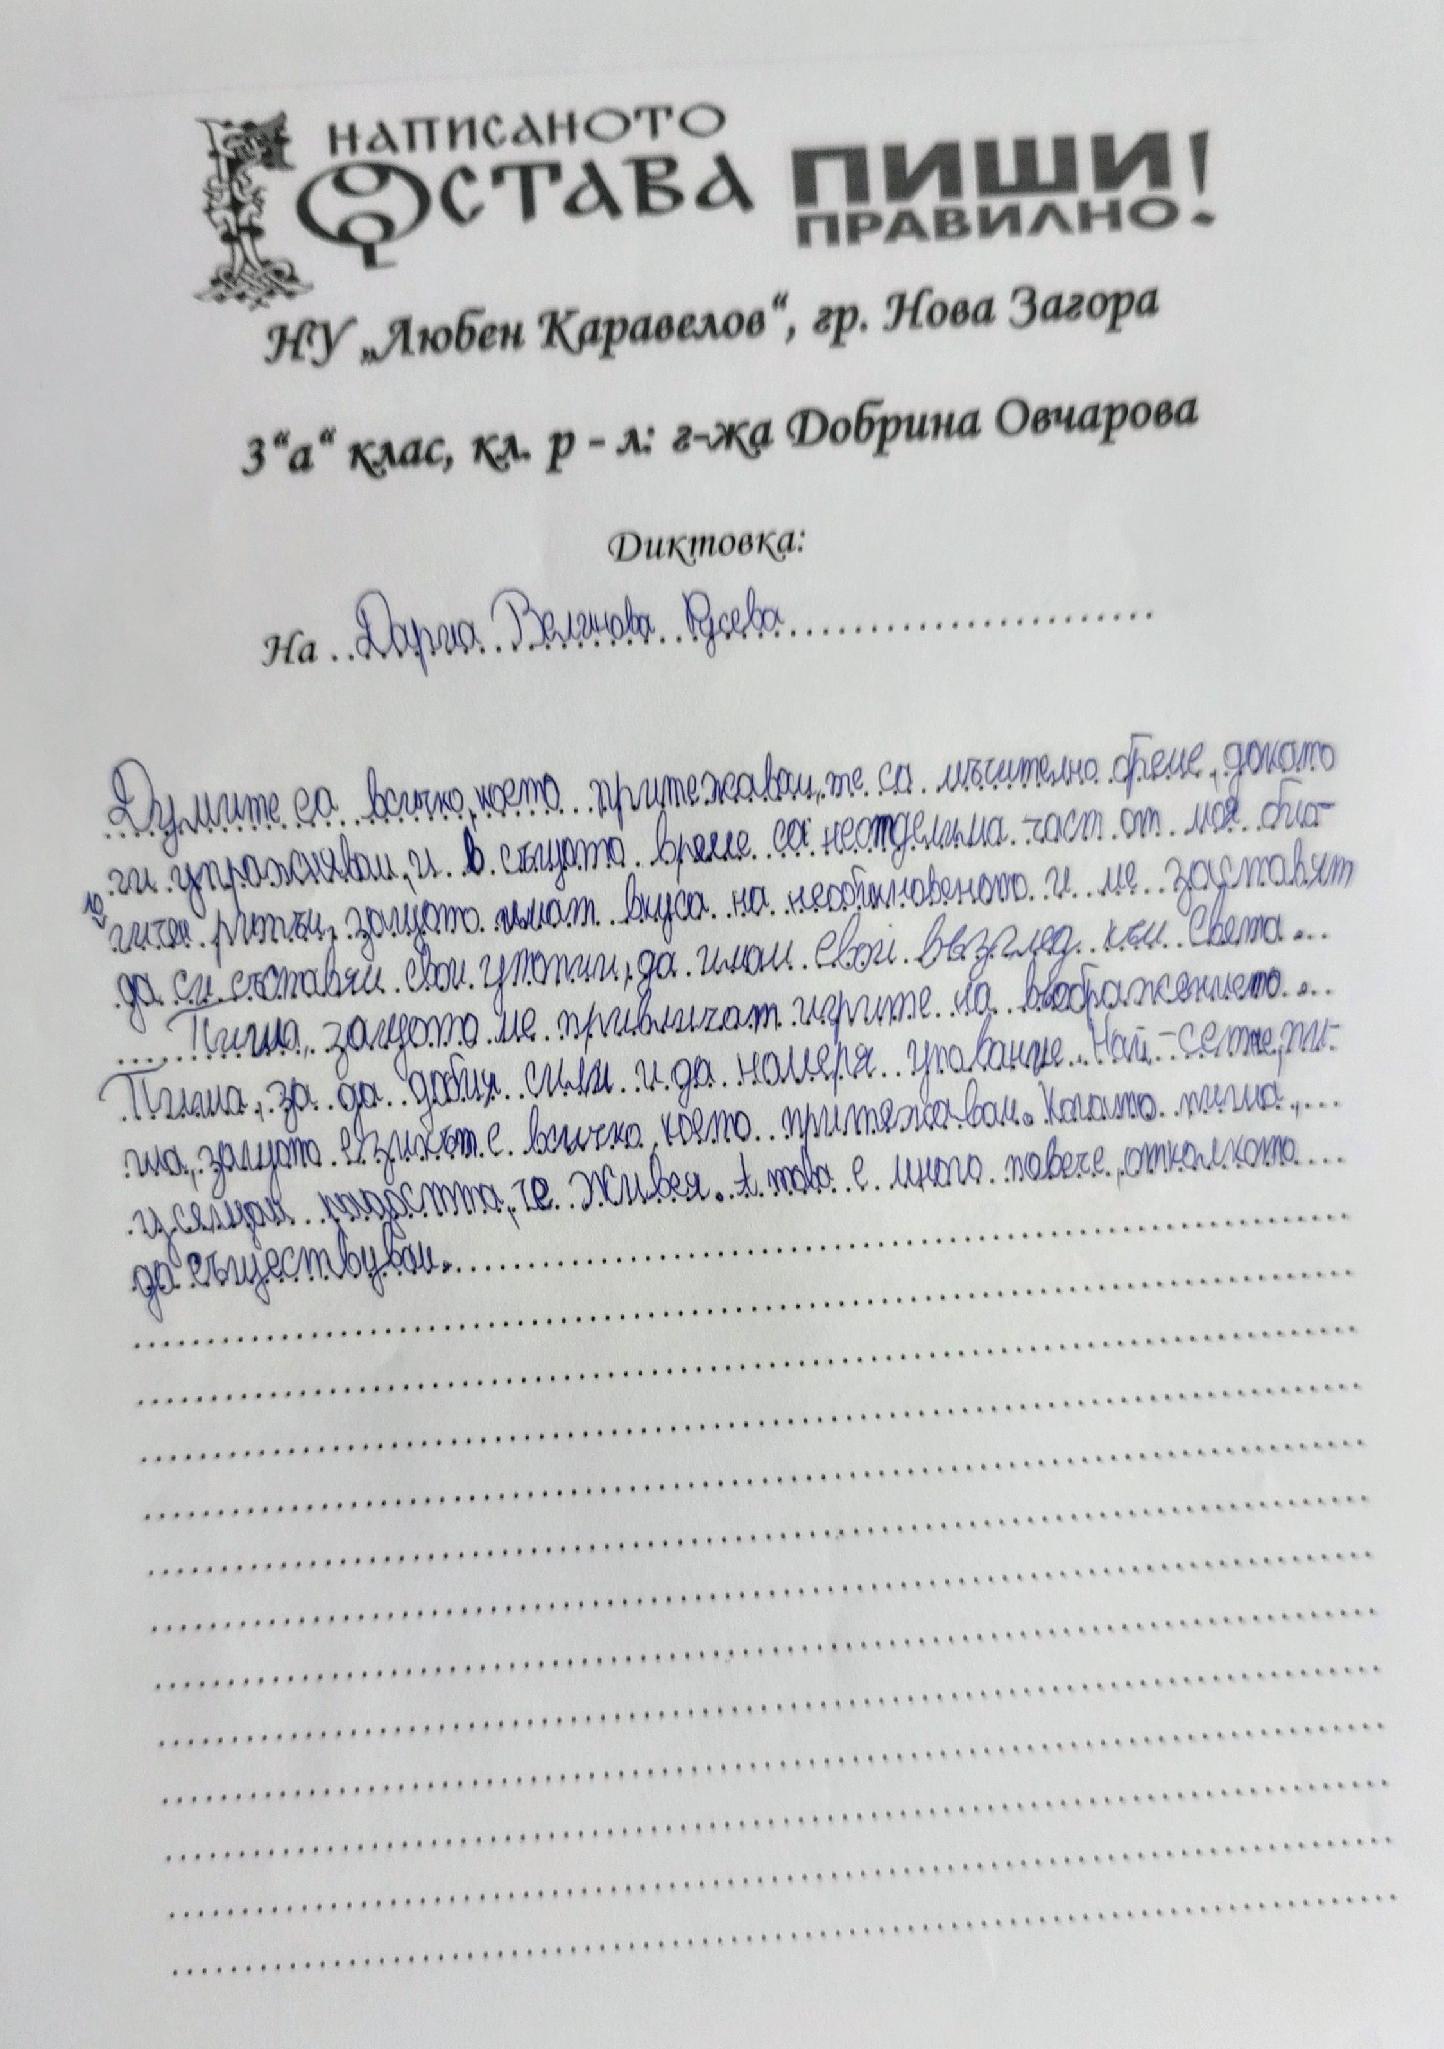 НАПИСАНОТО
ОСТАВА
ПИШИ
ПРАВИЛНО!
НУ „Любен Каравелов“, гр. Нова Загора
3“а“ клас, кл. р - л: г-жа Добрина Овчарова
Диктовка:
На Дария Велинова Юсева
Думите са всичко, което притежавам, те са мъчително бреме, докато
ги упражнявам, и в същото време са неотделима част от моя био-
гичен ритъм, защото имат вкуса на необикновеното и ме заставят
ло
да си съставям свои утопии, да имам свой възглед към света.
Пиша, защото ме привличат игрите на въображението.
Пиша, за да добия сили и да намеря упование. Най-сетне, пи-
ша, защото езикът е всичко, което притежавам. Когато пиша,
усещам радостта, че живея. А това е много повече, отколкото
да съществувам.